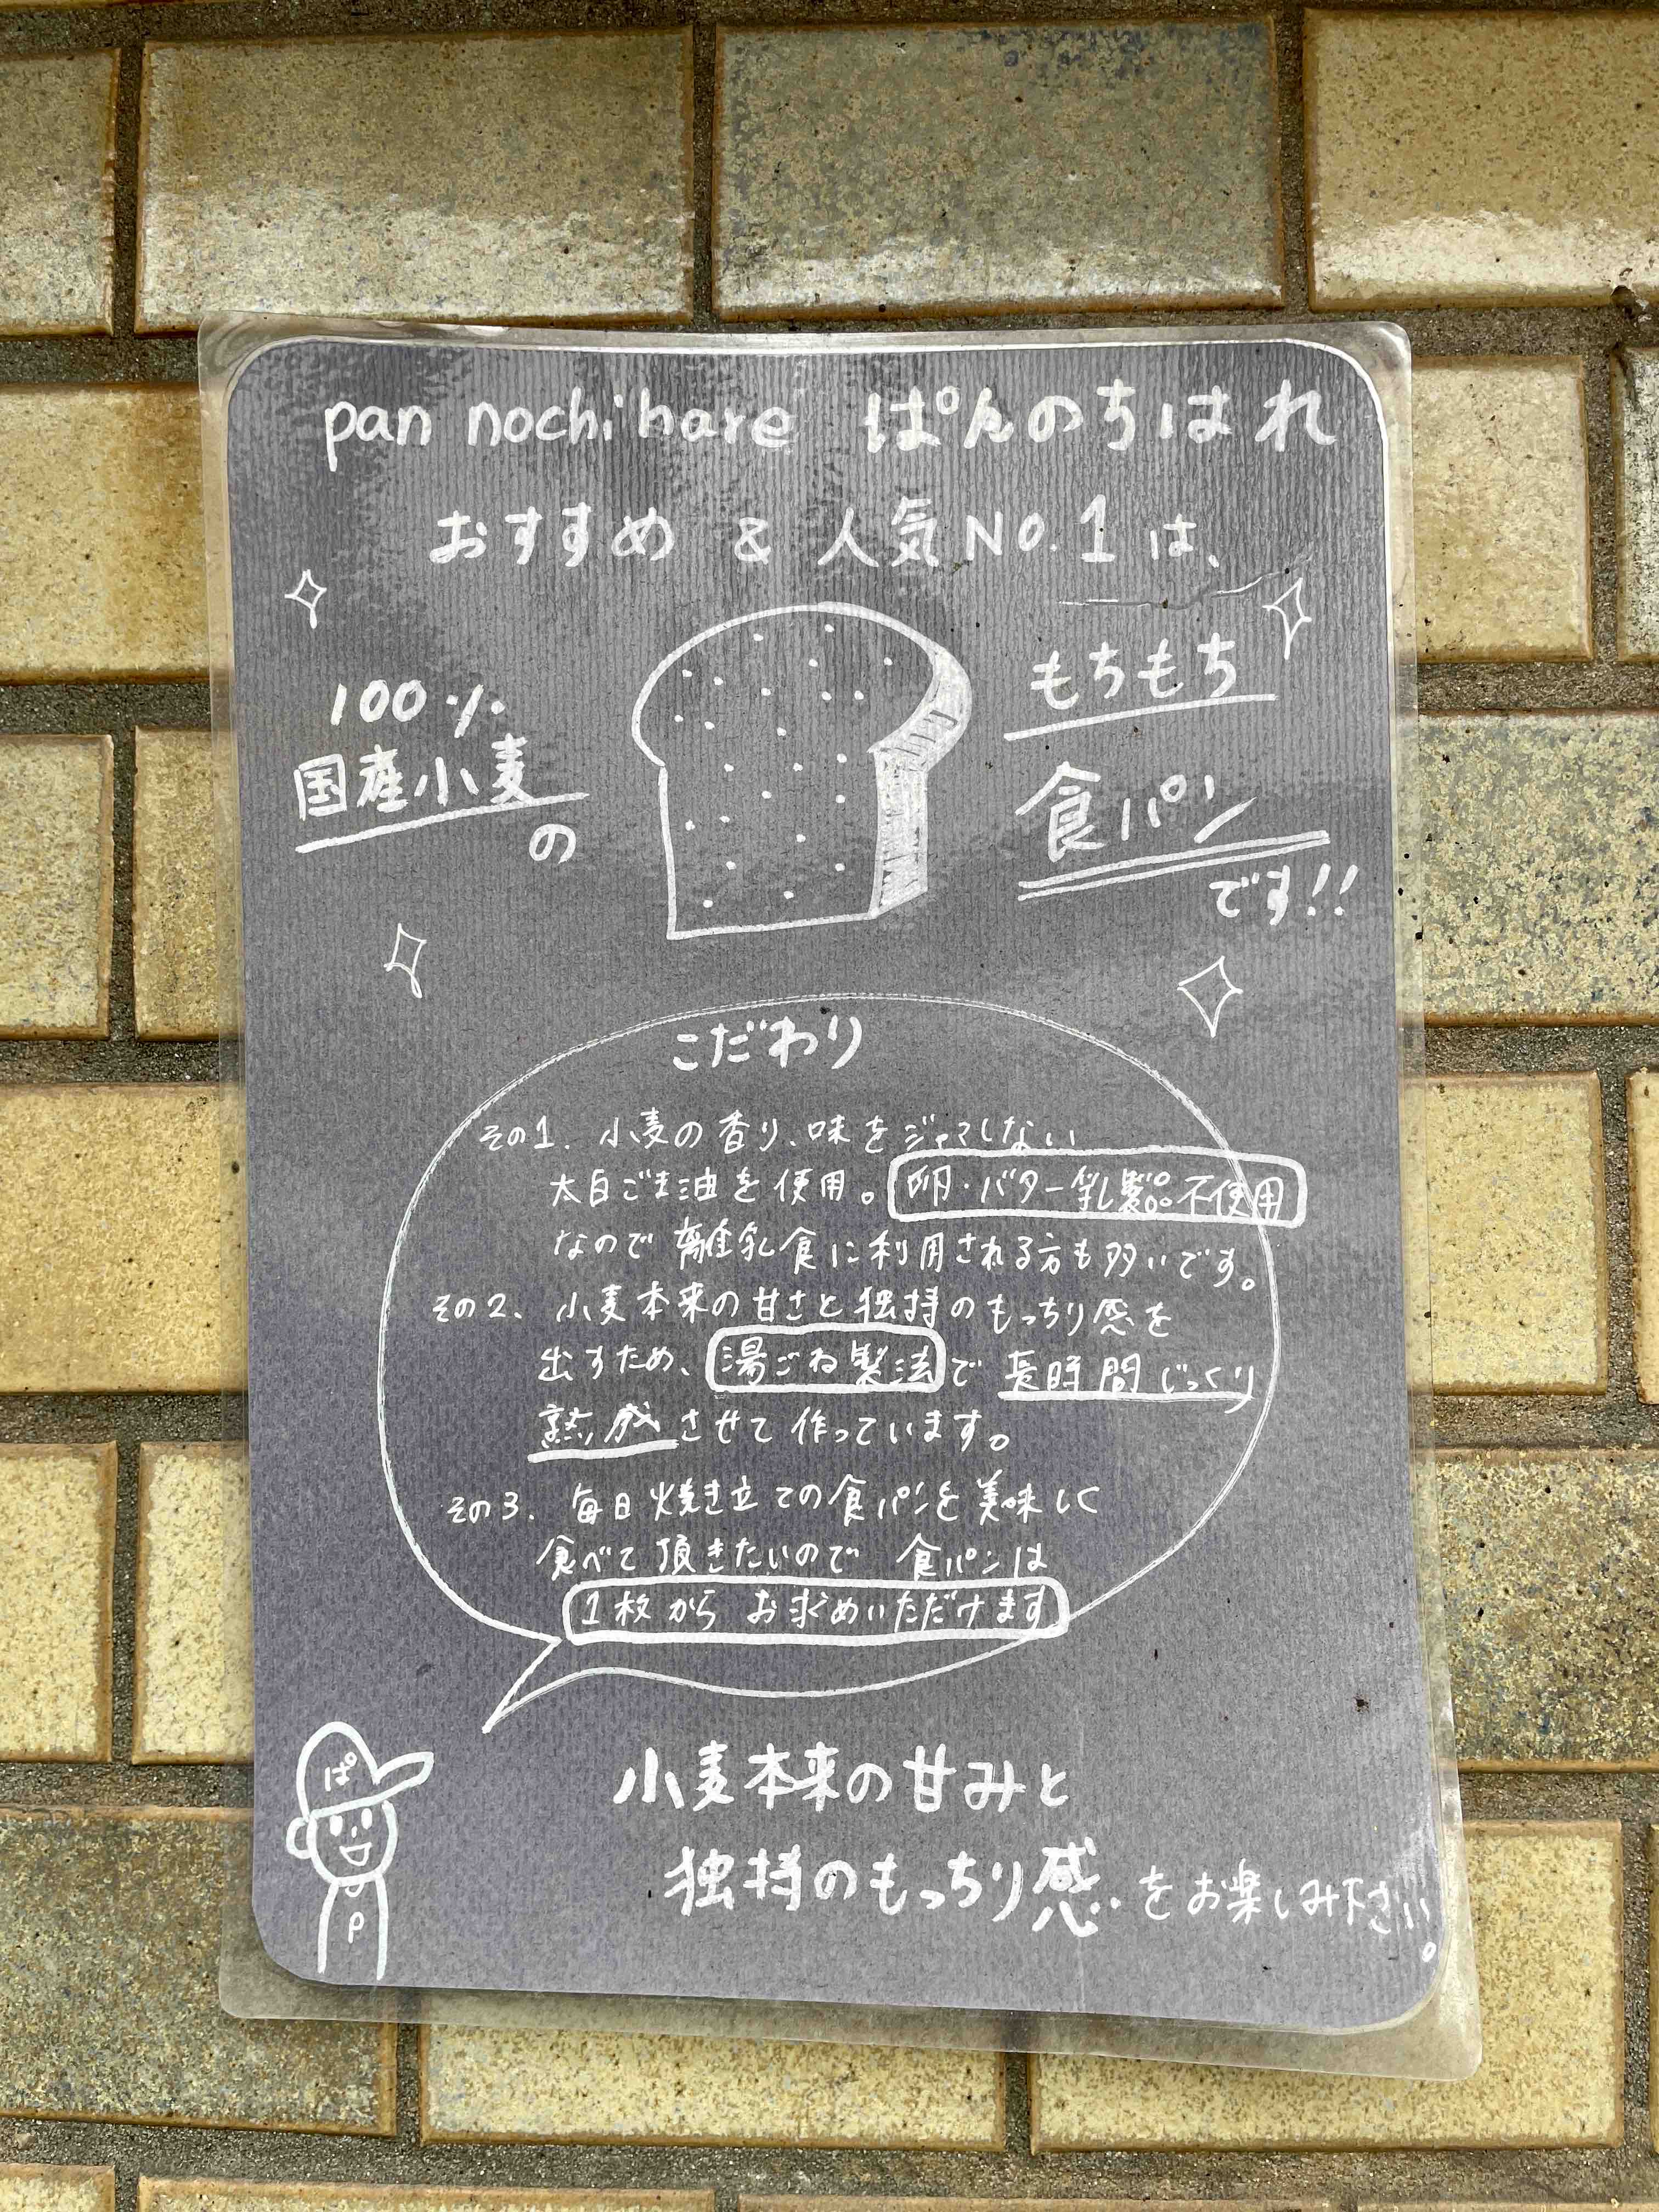 pan nochihare ぱんのちはれ
おすすめ & 人気No.1は、
100%
国産小麦
の
もちもち
食パン
です!!
こだわり
その1. 小麦の香り、味をジャマしない
太白ごま油を使用。卵・バター乳製品不使用
なので離乳食に利用される方も多いです。
その2、小麦本来の甘さと独特のもっちり感を
出すため、湯ごね製法で長時間じっくり
熟成させて作っています。
その3. 毎日焼き立ての食パンを美味しく
食べて頂きたいので 食パンは
1枚から お求めいただけます
ぱ
P
小麦本来の甘みと
独特のもっちり感をお楽しみ下さい。